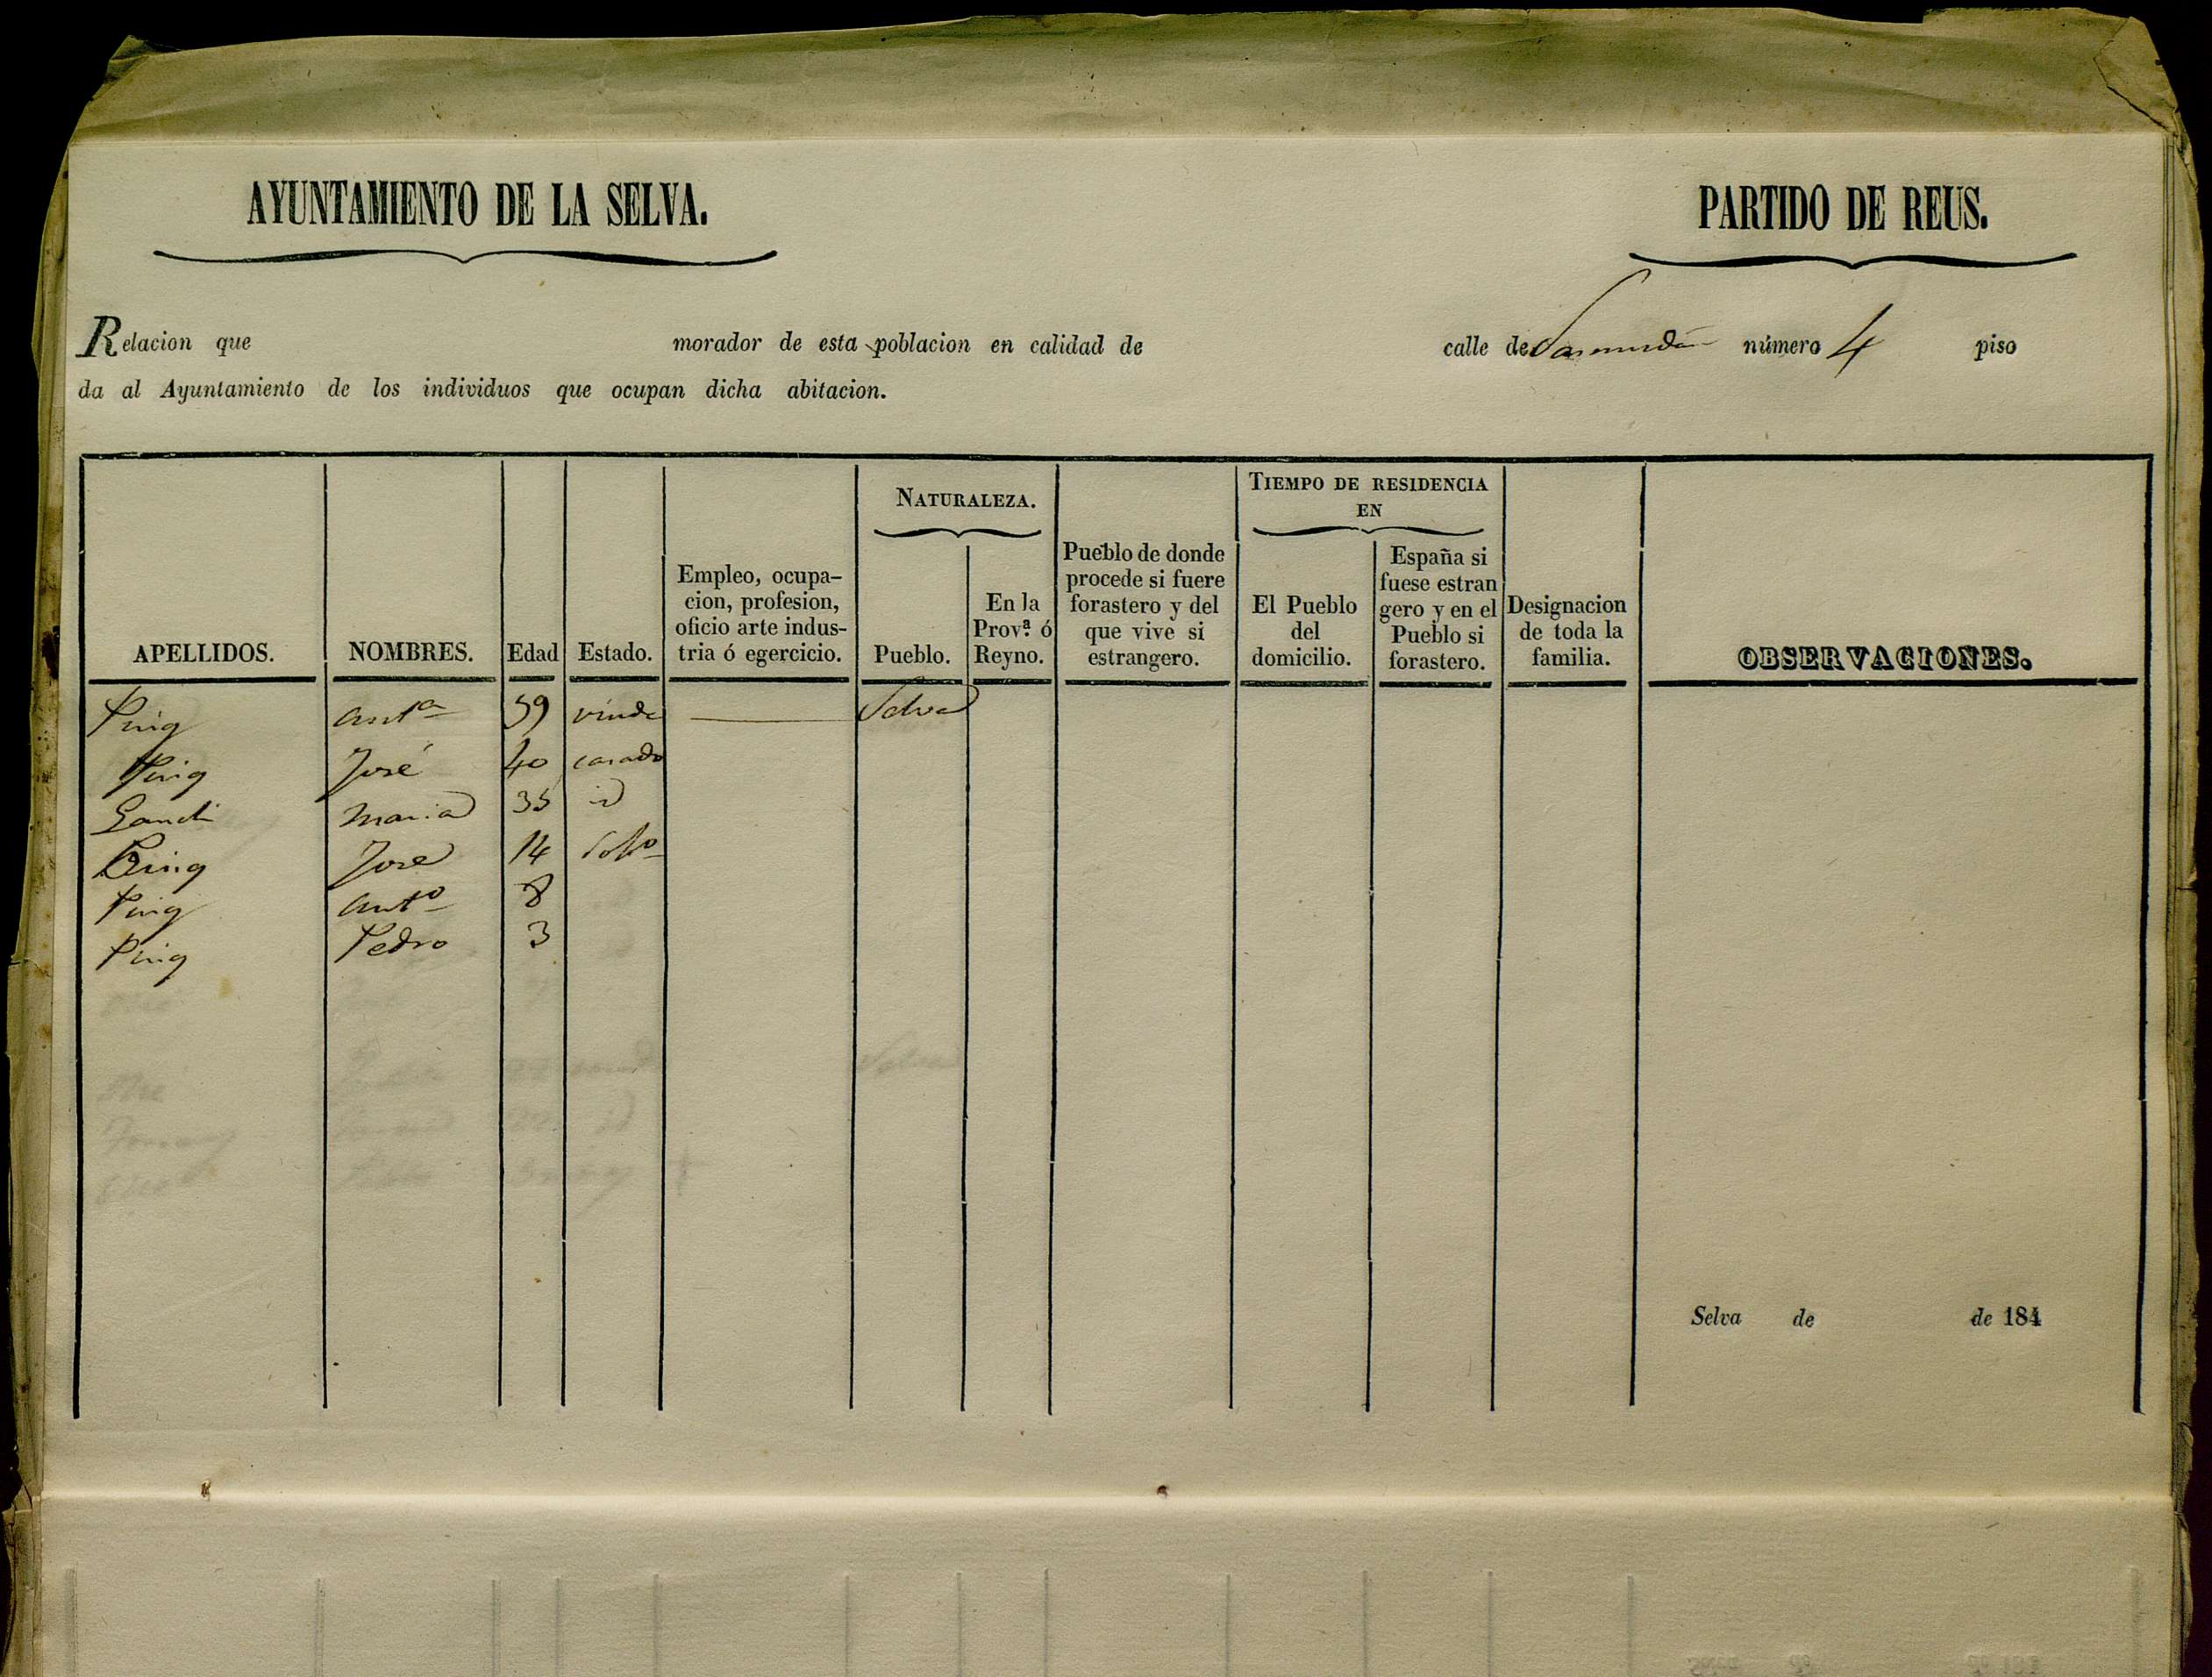 AYUNTAMIENTO DE LA SELVA.
PARTIDO DE REUS.
Relacion que morador de esta poblacion en calidad de calle de número 4 piso
da al Ayuntamiento de los individuos que ocupan dicha abitacion.
APELLIDOS.
NOMBRES.
Edad
Estado.
Empleo, ocupa-
cion, profesion,
oficio arte indus-
tria ó egercicio.
NATURALEZA.
Pueblo.
En la
Provª ó
Reyno.
Pueblo de donde
procede si fuere
forastero y del
que vive si
estrangero.
TIEMPO DE RESIDENCIA
EN
El Pueblo
del
domicilio.
España si
fuese estran
gero y en el
Pueblo si
forastero.
Designacion
de toda la
familia.
OBSERVACIONES.
Puig Antª 59 viuda Selva
Puig José 40 casado
Maria 35 id
Puig José 14 solto
Puig Antº 8
Puig Pedro 3
Selva de de 184